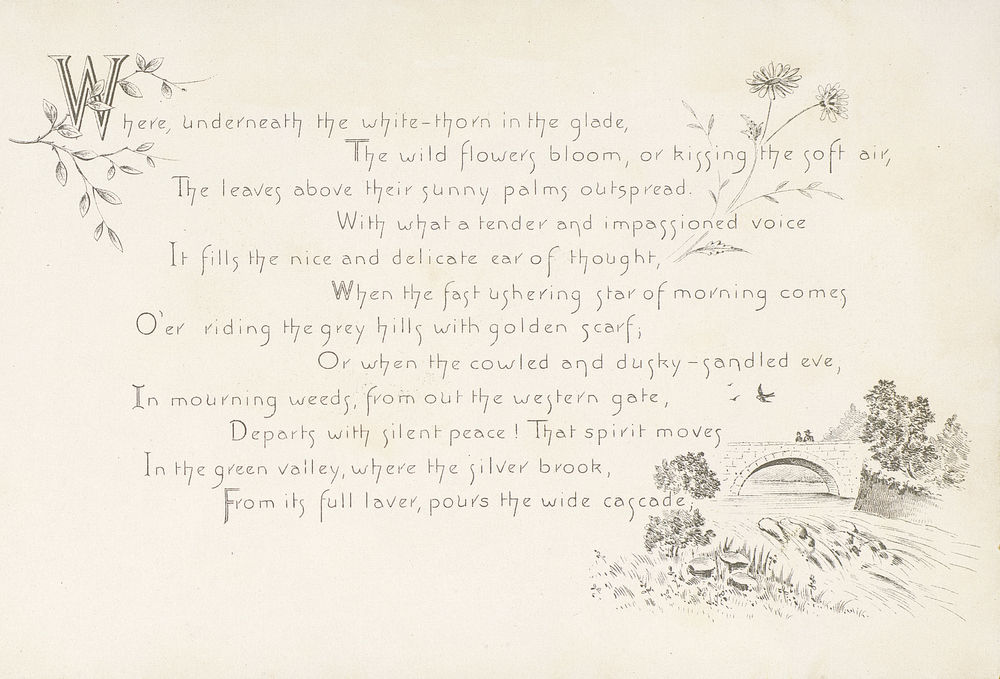 Where, underneath the white-thorn in the glade,
The wild flowers bloom, or kissing the soft air,
The leaves above their sunny palms outspread.
With what a tender and impassioned voice
It fills the nice and delicate ear of thought,
When the fast ushering star of morning comes
O'er riding the grey hills with golden scarf;
Or when the cowled and dusky-sandled eve,
In mourning weeds, from out the western gate,
Departs with silent peace! That spirit moves
In the green valley, where the silver brook,
From its full laver, pours the wide cascade,